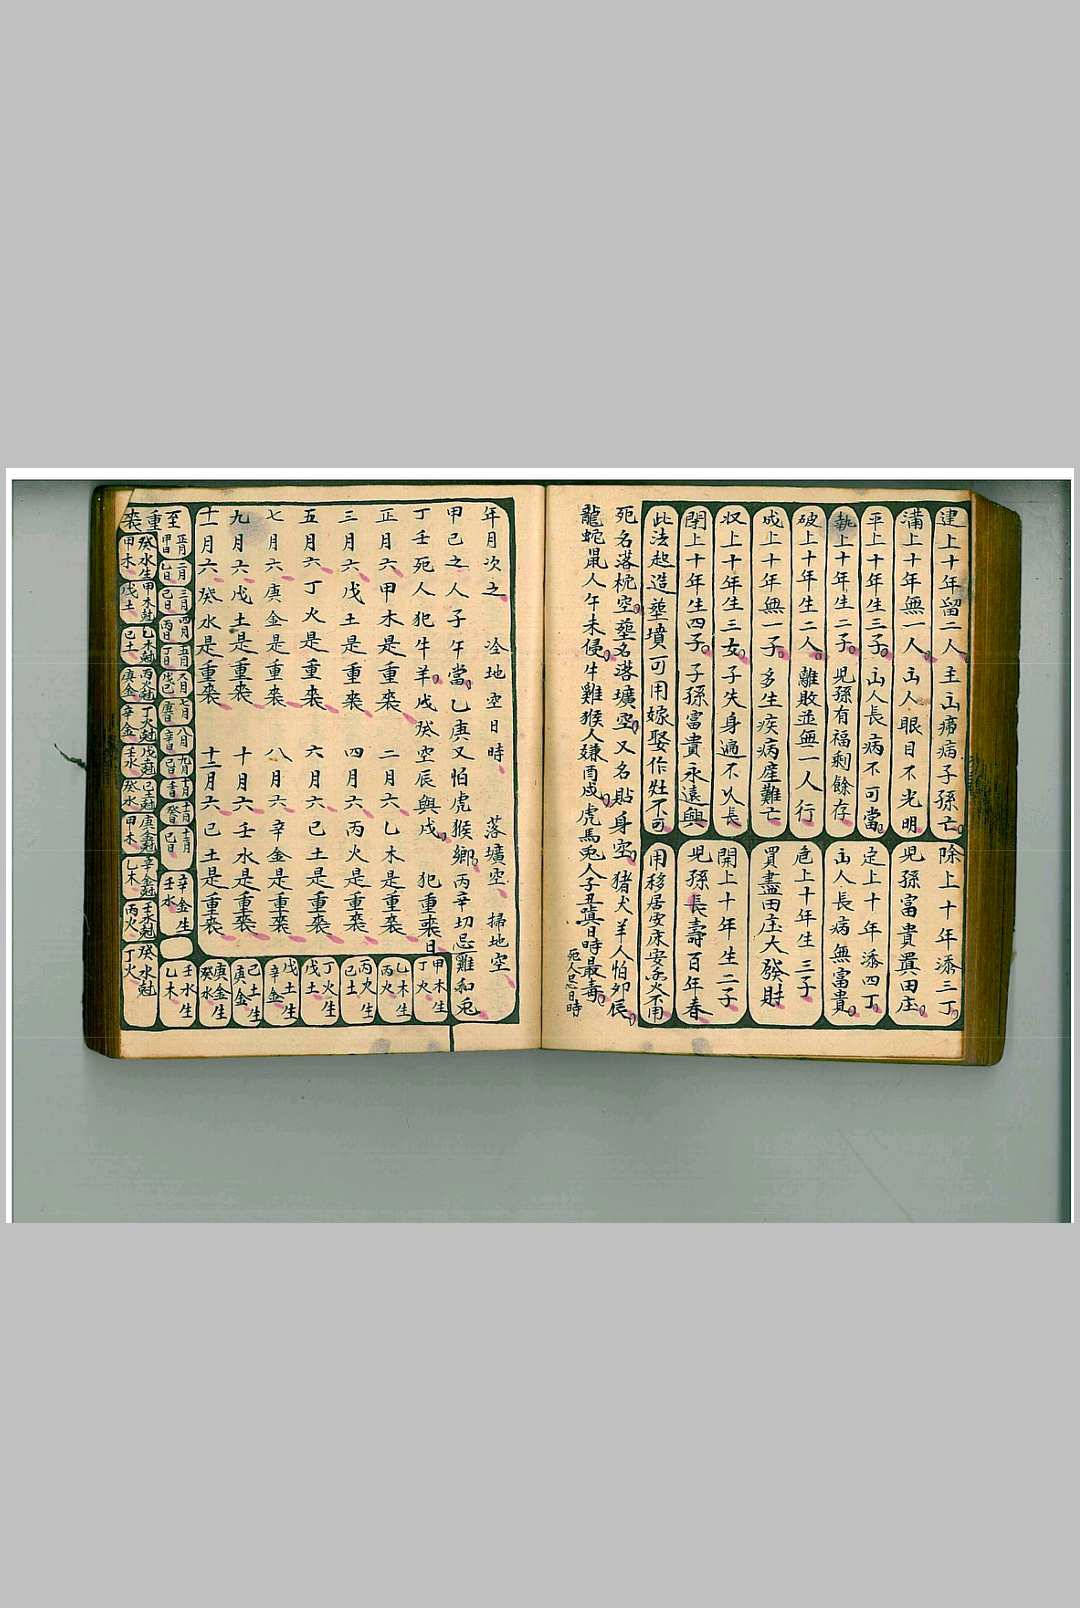 建上十年留二人主山痛病子孫亡
除上十年添三丁
滿上十年無一人山人眼目不光明
児孫富貴買田庄
平上十年生三子山人長病不可當
定上十年添四丁
執上十年生二子児孫有福剩餘存
山人長病無富貴
破上十年生二人離敗並無一人行
危上十年生三子
成上十年無一子多生疾病產難亡
買盡田庄大發財
収上十年生三女子失身過不久長
開上十年生二子
閉上十年生四子子孫富貴永遠興
児孫長壽百年春
此法起造塟墳可用嫁娶作灶不可
用移居安床安永火不用
死名落棺空塟名落壙空又名貼身空猪犬羊人怕卯辰
龍蛇鼠人午未侵牛雞猴人嫌酉戌虎馬兎人子丑寅日時最毒
死人忌日時
年月次之 冷地空日時 落壙空 掃地空
甲己之人子午當乙庚又怕虎猴鄉丙辛切忌雞和兎
丁壬死人犯牛羊戊癸空辰與戌 犯重喪日
正月六甲木是重喪 二月六乙木是重喪
三月六戊土是重喪 四月六丙火是重喪
五月六丁火是重喪 六月六己土是重喪
七月六庚金是重喪 八月六辛金是重喪
九月六戊土是重喪 十月六壬水是重喪
十一月六癸水是重喪 十二月六己土是重喪
甲木生丁火
乙木生丙火
丙火生己土
丁火生戊土
戊土生辛金
己土生庚金
庚金生癸水
辛金生壬水
壬水生乙木
癸水生甲木
至重喪
正月甲日
二月乙日
三月己日
四月丙日
五月丁日
六月己日
七月庚日
八月辛日
九月己日
十月壬日
十一月癸日
十二月己日
甲木尅戊土
乙木尅己土
丙火尅庚金
丁火尅辛金
戊土尅壬水
己土尅癸水
庚金尅甲木
辛金尅乙木
壬水尅丙火
癸水尅丁火